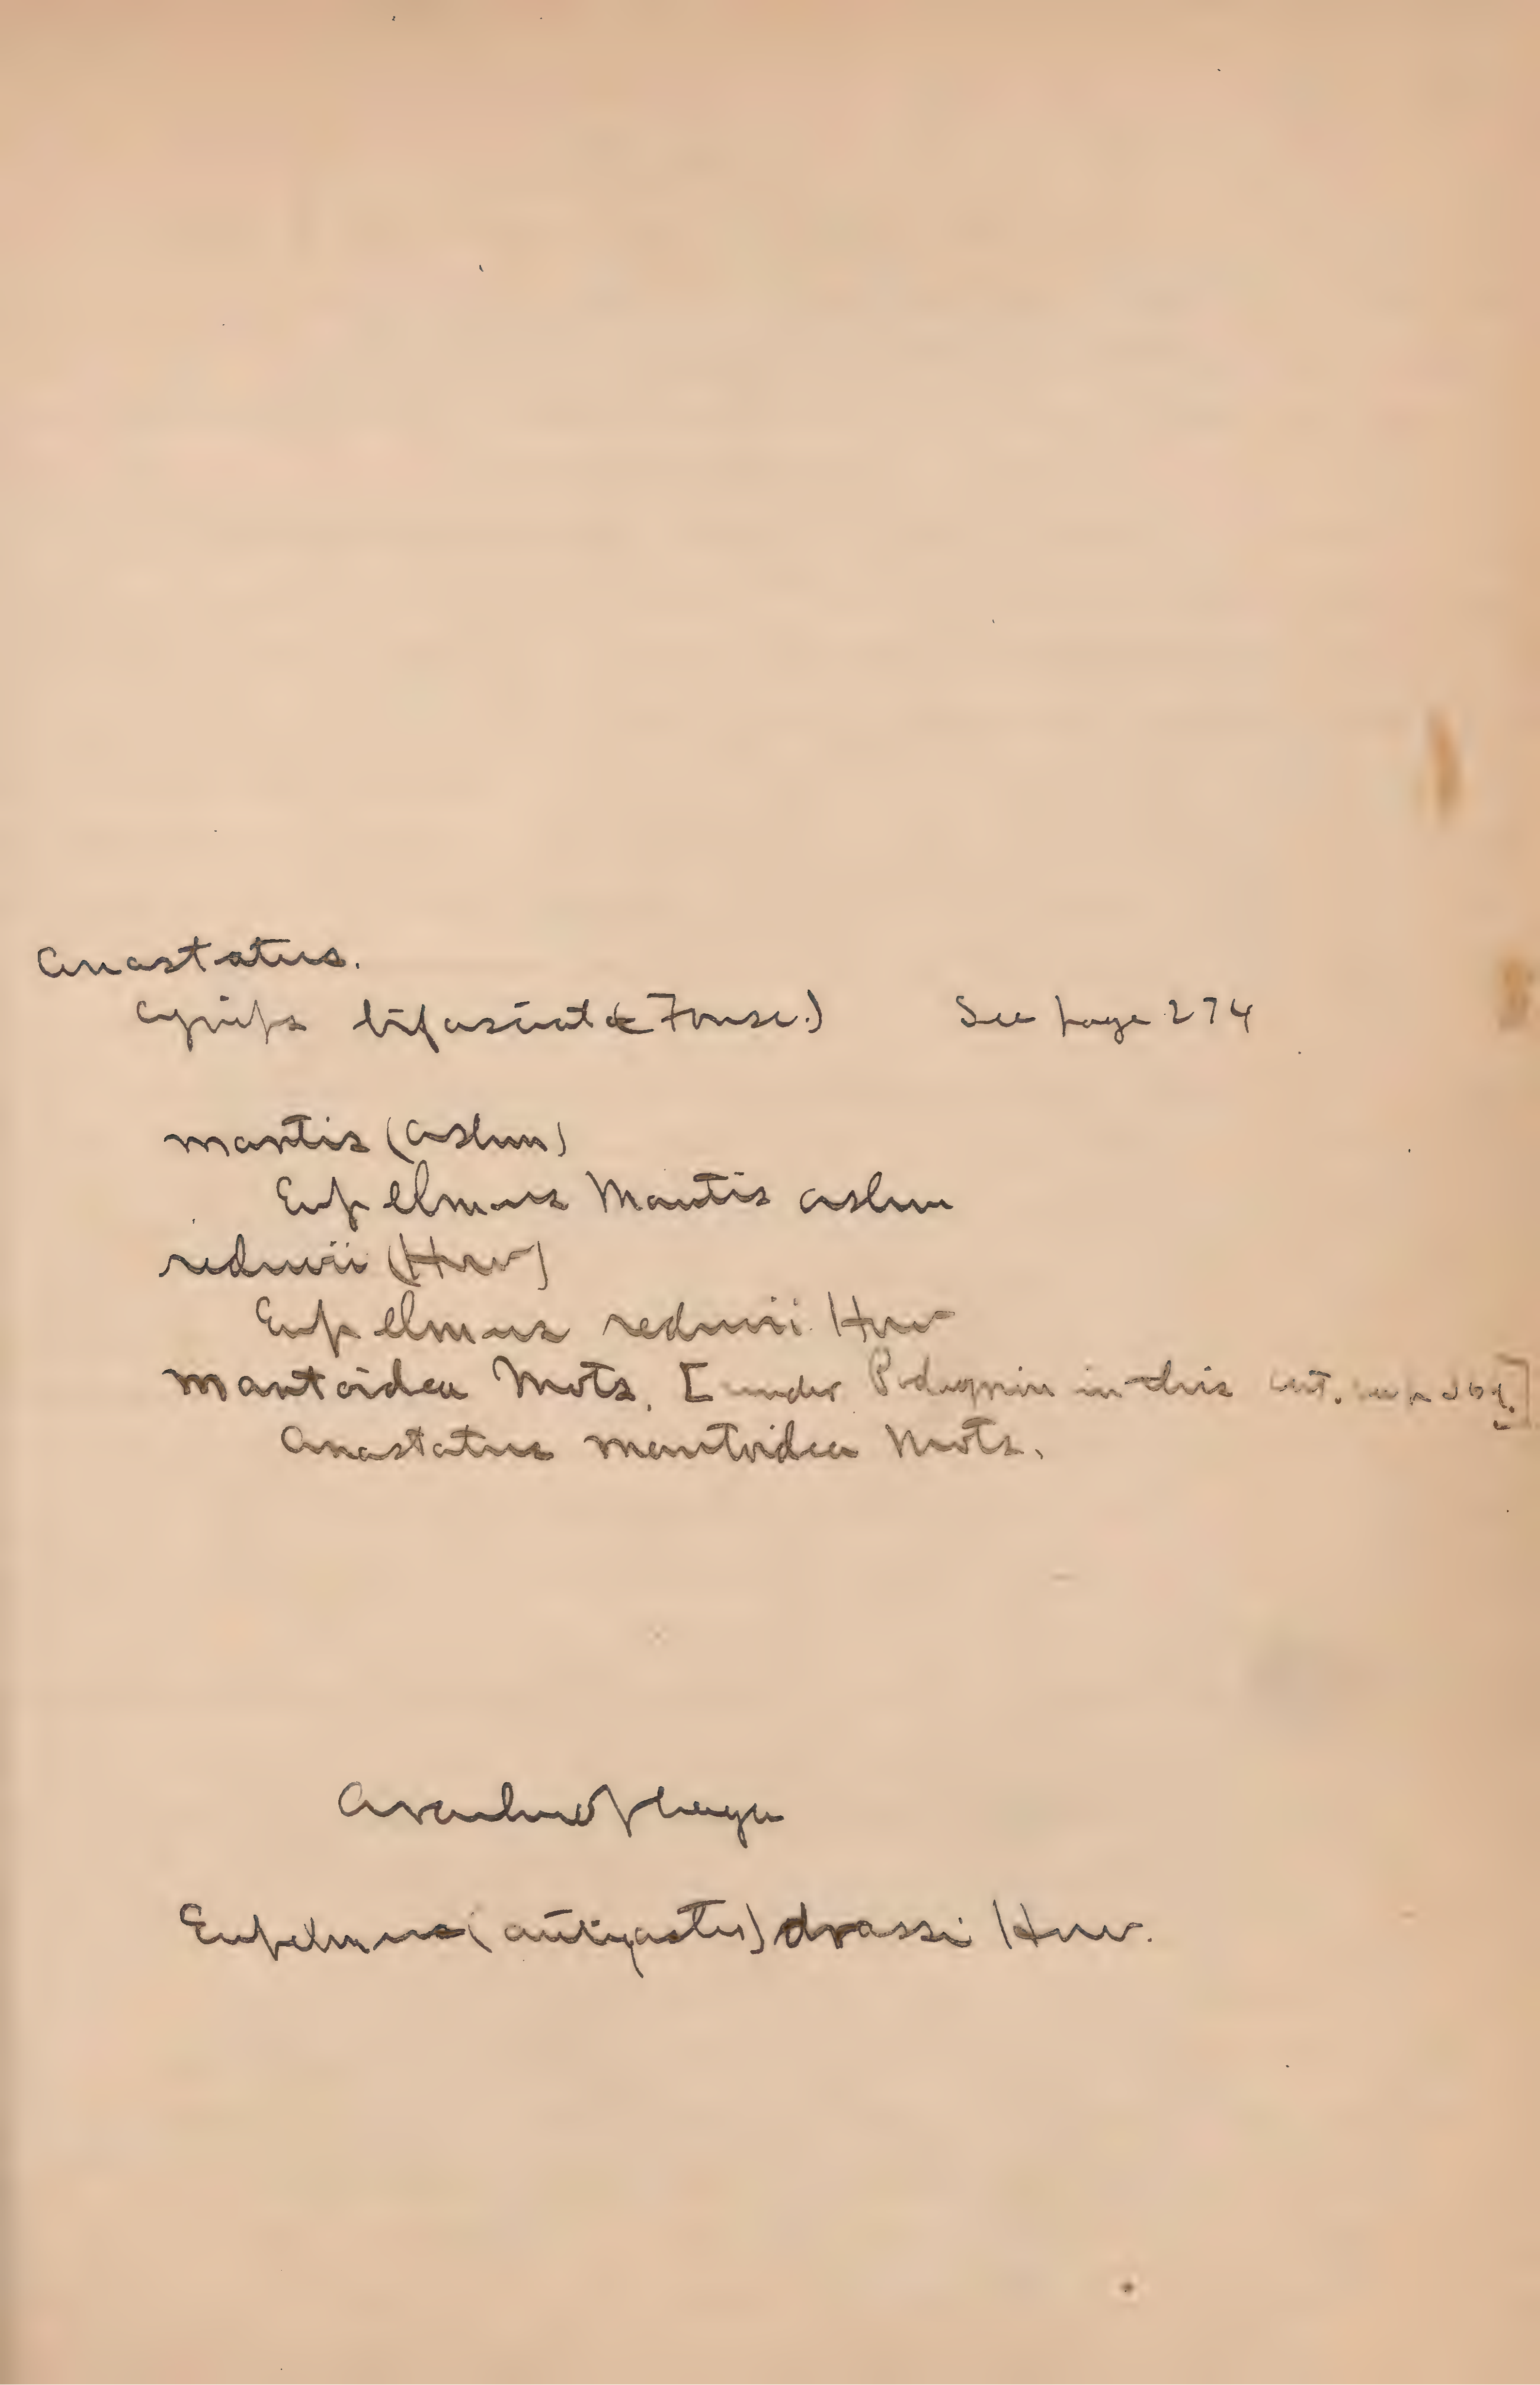 Anastatus.
Cynips bifasciata (Fonsc.) See page 274
mantis (Ashm)
Eupelmus Mantis Ashm
reduvii (How)
Eupelmus reduvii How
mantoidea Mots. [under Podagrion in this cat.
Anastatus mantoidea Mots.
Arachnophaga
Eupelmus (antigaster) drassi How.